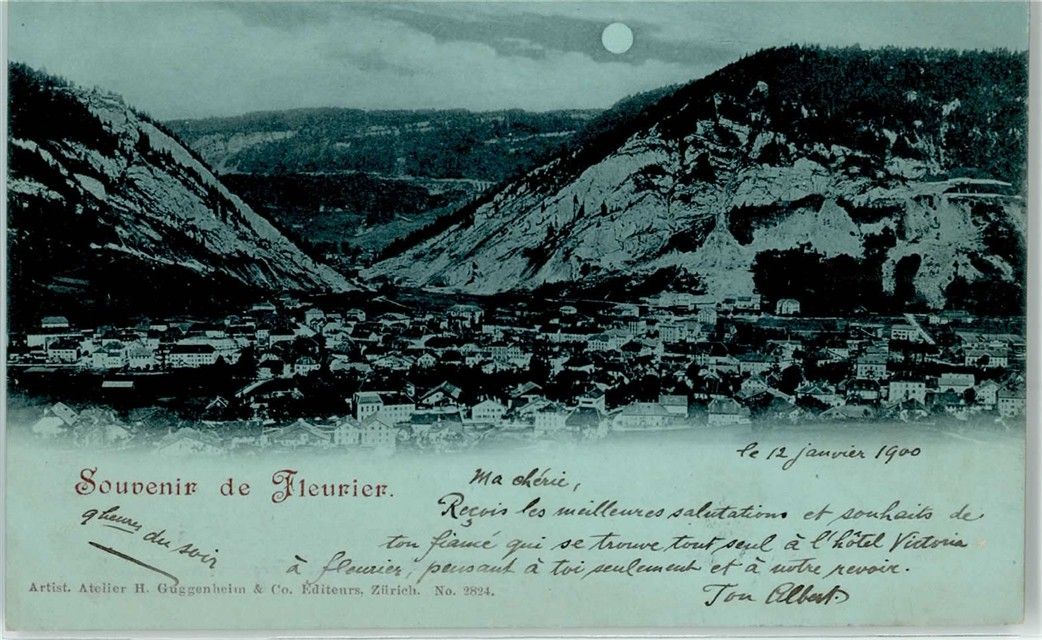 le 12 janvier 1900
Souvenir de Fleurier.
Ma chérie,
9 heures du soir
Reçois les meilleures salutations et souhaits de
ton fiancé qui se trouve tout seul à l'hôtel Victoria
à fleurier, pensant à toi seulement et à notre revoir.
Ton Albert.
Artist. Atelier H. Guggenheim & Co. Éditeurs, Zürich. No. 2824.